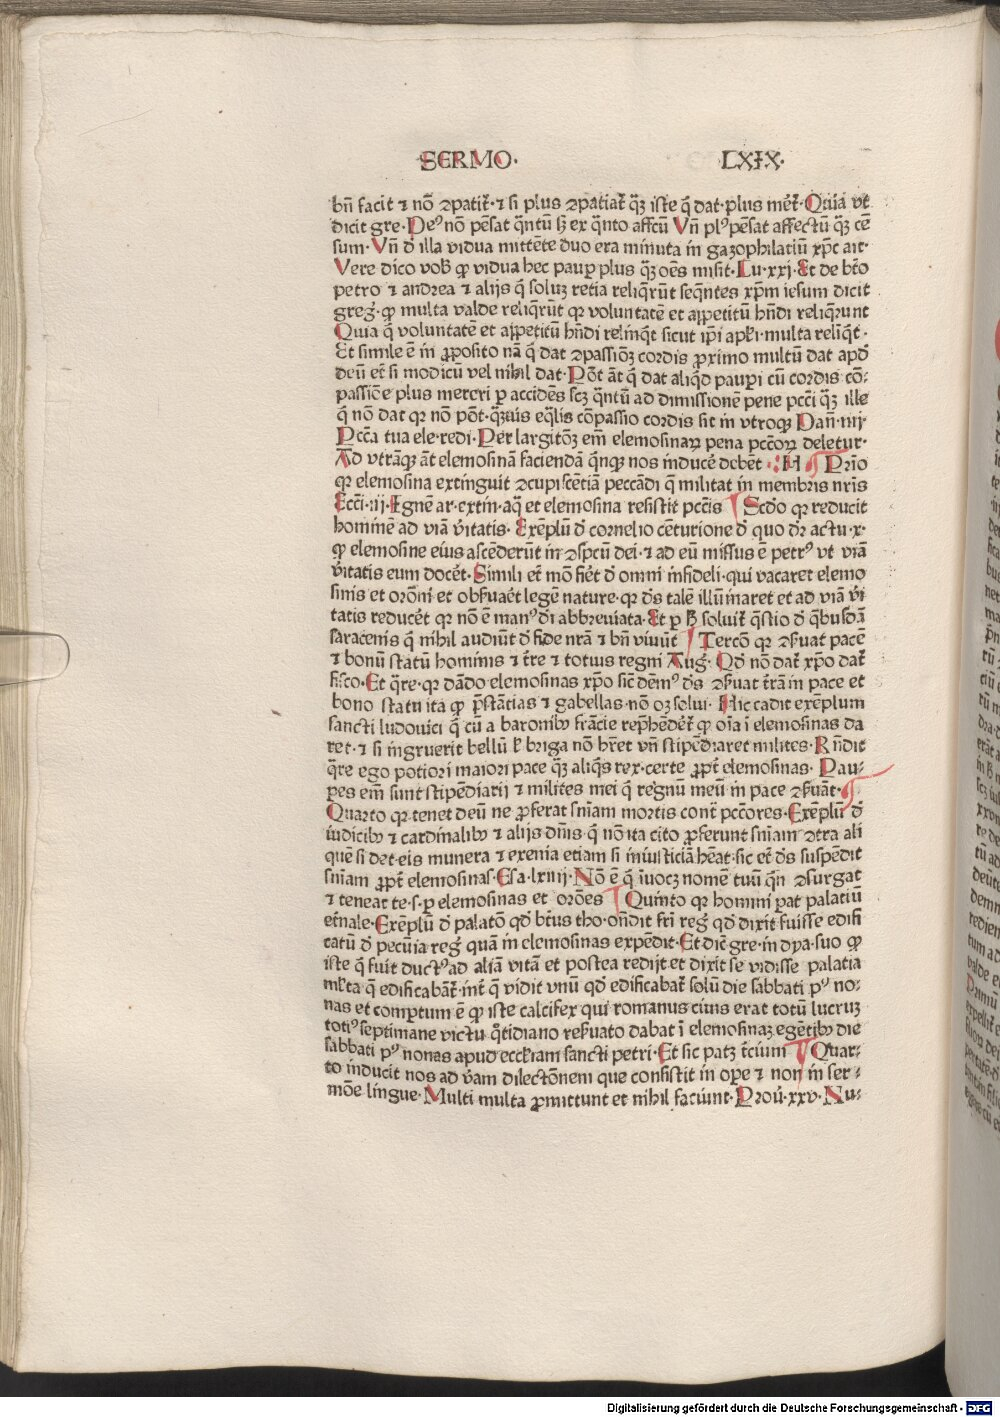 SERMO· LXIX·
bn̄ facit ⁊ nō ꝯpatit᷑· ⁊ si plus ꝯpatiat᷑ qꝫ iste q̄ dat· plus mēt᷑· Quia vt
dicit gre· Deꝰ nō pēsat q̄ntū sꝫ ex q̄nto affcū Vn̄ plꝰ pēsat affectū qꝫ cē
sum· Vn̄ d̄ illa vidua mittēte duo era minuta in gazophilatiū xp̄c ait·
Vere dico vob̄ ꝙ vidua hec paup̱ plus qꝫ oēs misit· Lu·xxj· Et de bt̄o
petro ⁊ andrea ⁊ alijs q̄ soluꝫ retia reliq̄rūt seq̄ntes xp̄m iesum dicit
greg̾· ꝙ multa valde reliq̄rūt qr voluntatē et appetitū hn̄di reliq̄runt
Quia q̄ voluntatē et appetitū hn̄di relinq̄t sicut ip̄i apl̄i· multa reliq̄t·
Et simile ē in ꝓposito nā q̄ dat ꝯpassiōꝫ cordis ꝓximo multū dat apd̄
deū et̄ si modicū vel nihil dat· Pōt āt q̄ dat aliq̄d paup̱i cū cordis cō⸗
passiōe plus mereri p̱ accidēs scꝫ q̄ntū ad dimissionē pene pcc̄i qꝫ ille
q̄ nō dat qr nō pōt· qꝫuis eq̄lis cōpassio cordis sit in vtroqꝫ Dan̄·iiij·
Pcc̄a tua ele·redi· Per largitōꝫ em̄ elemosinaꝝ pena pcc̄oꝝ deletur·
Ad vtrāqꝫ āt elemosinā faciendā q̄nqꝫ nos inducē debēt ·:H ¶ Prīo
qr elemosina extinguit ꝯcupiscētiā peccādi q̄ militat in membris nr̄is
Ecc̄i·iij· Ignē ar·extin·aq̄ et elemosina resistit pcc̄is ¶ Scd̄o qr reducit
hominē ad viā v̄itatis· Exēplū d̄ cornelio cēturione d̄ quo dr̄ actu·x·
ꝙ elemosine eius ascēderūt in ꝯspcū dei· ⁊ ad eū missus ē petrꝰ vt viā
v̄itatis eum docēt· Simili et̄ mō fiēt d̄ omni infideli· qui vacaret elemo
sinis et orōni et obẜuaēt legē nature· qr dn̄s talē illūinaret et ad viā v̄i
tatis reducēt qr nō ē manꝰ dn̄i abbreuiata· Et p̱ ꝭ soluit᷑ q̄stio d̄ q̄busdā
saracenis q̄ nihil audiūt d̄ fide nr̄a ⁊ bn̄ viuūt ¶ Tercō qr ꝯẜuat pacē
⁊ bonū statū hominis ⁊ t̄re ⁊ totius regni Aug̾· Qd̄ nō dat᷑ xp̄o dat᷑
fisco· Et q̄re· qr dādo elemosinas xp̄o sic dēmꝰ dn̄s ꝯẜuat t̄rā in pace et
bono statu ita ꝙ p̄stātias ⁊ gabellas nō oꝫ solui· Hic cadit exēplum
sancti ludouici q̄ cū a baronibꝰ frācie rep̄hēdēt᷑ ꝙ oīa ī elemosinas da
ret· ⁊ si ingruerit bellū l̄ briga nō hr̄et vn̄ stipēdiaret milites· Rn̄dit
q̄re ego potiori maiori pace qꝫ aliq̄s rex· certe ꝓpt̄ elemosinas· Pau⸗
p̱es em̄ sunt stipēdiarij ⁊ milites mei q̄ regnū meū in pace ꝯẜuāt· ¶
Quarto qr tenet deū ne ꝓferat sn̄iam mortis cont̄ pcc̄ores· Exēplū d̄
iudicibꝰ ⁊ cardinalibꝰ ⁊ alijs dn̄is q̄ nō ita cito ꝓferunt sn̄iam ꝯtra ali
quē si det eis munera ⁊ exenia etiam si iniusticiā hēat· sic et̄ dn̄s suspēdit
sn̄iam ꝓpt̄ elemosinas· Esa·lxiiij· Nō ē q̄ īuocꝫ nomē tuū q̄n ꝯsurgat
⁊ teneat te·s·p̱ elemosinas et orōes ¶ Quinto qr homini p̱at palatiū
et̄nale· Exēplū d̄ palatō qd̄ bt̄us tho·on̄dit fr̄i reg̾ qd̄ dixit fuisse edifi
catū d̄ pecūia reg̾ quā in elemosinas expēdit· Et dic̄ gre·in dya·suo ꝙ
iste q̄ fuit ductꝰ ad aliā vitā et postea redijt et dixit se vidisse palatia
ml̄ta q̄ edificabāt᷑· int̄ q̄ vidit vnū qd̄ edificabat᷑ solū die sabbati pꝰ no⸗
nas et comptum ē ꝙ iste calcifex qui romanus ciuis erat totū lucruꝫ
totiꝰ septimane victu q̄tidiano reẜuato dabat ī elemosinaꝫ egētibꝰ die
sabbati pꝰ nonas apud eccl̄iam sancti petri· Et sic patꝫ t̄cium ¶ Quar⸗
to inducit nos ad v̄am dilectōnem que consistit in ope ⁊ non in ser⸗
mōe lingue· Multi multa ꝓmittunt et nihil faciūnt· Prou̾·xxv· Nu⸗
Digitalisierung gefördert durch die Deutsche Forschungsgemeinschaft - DFG